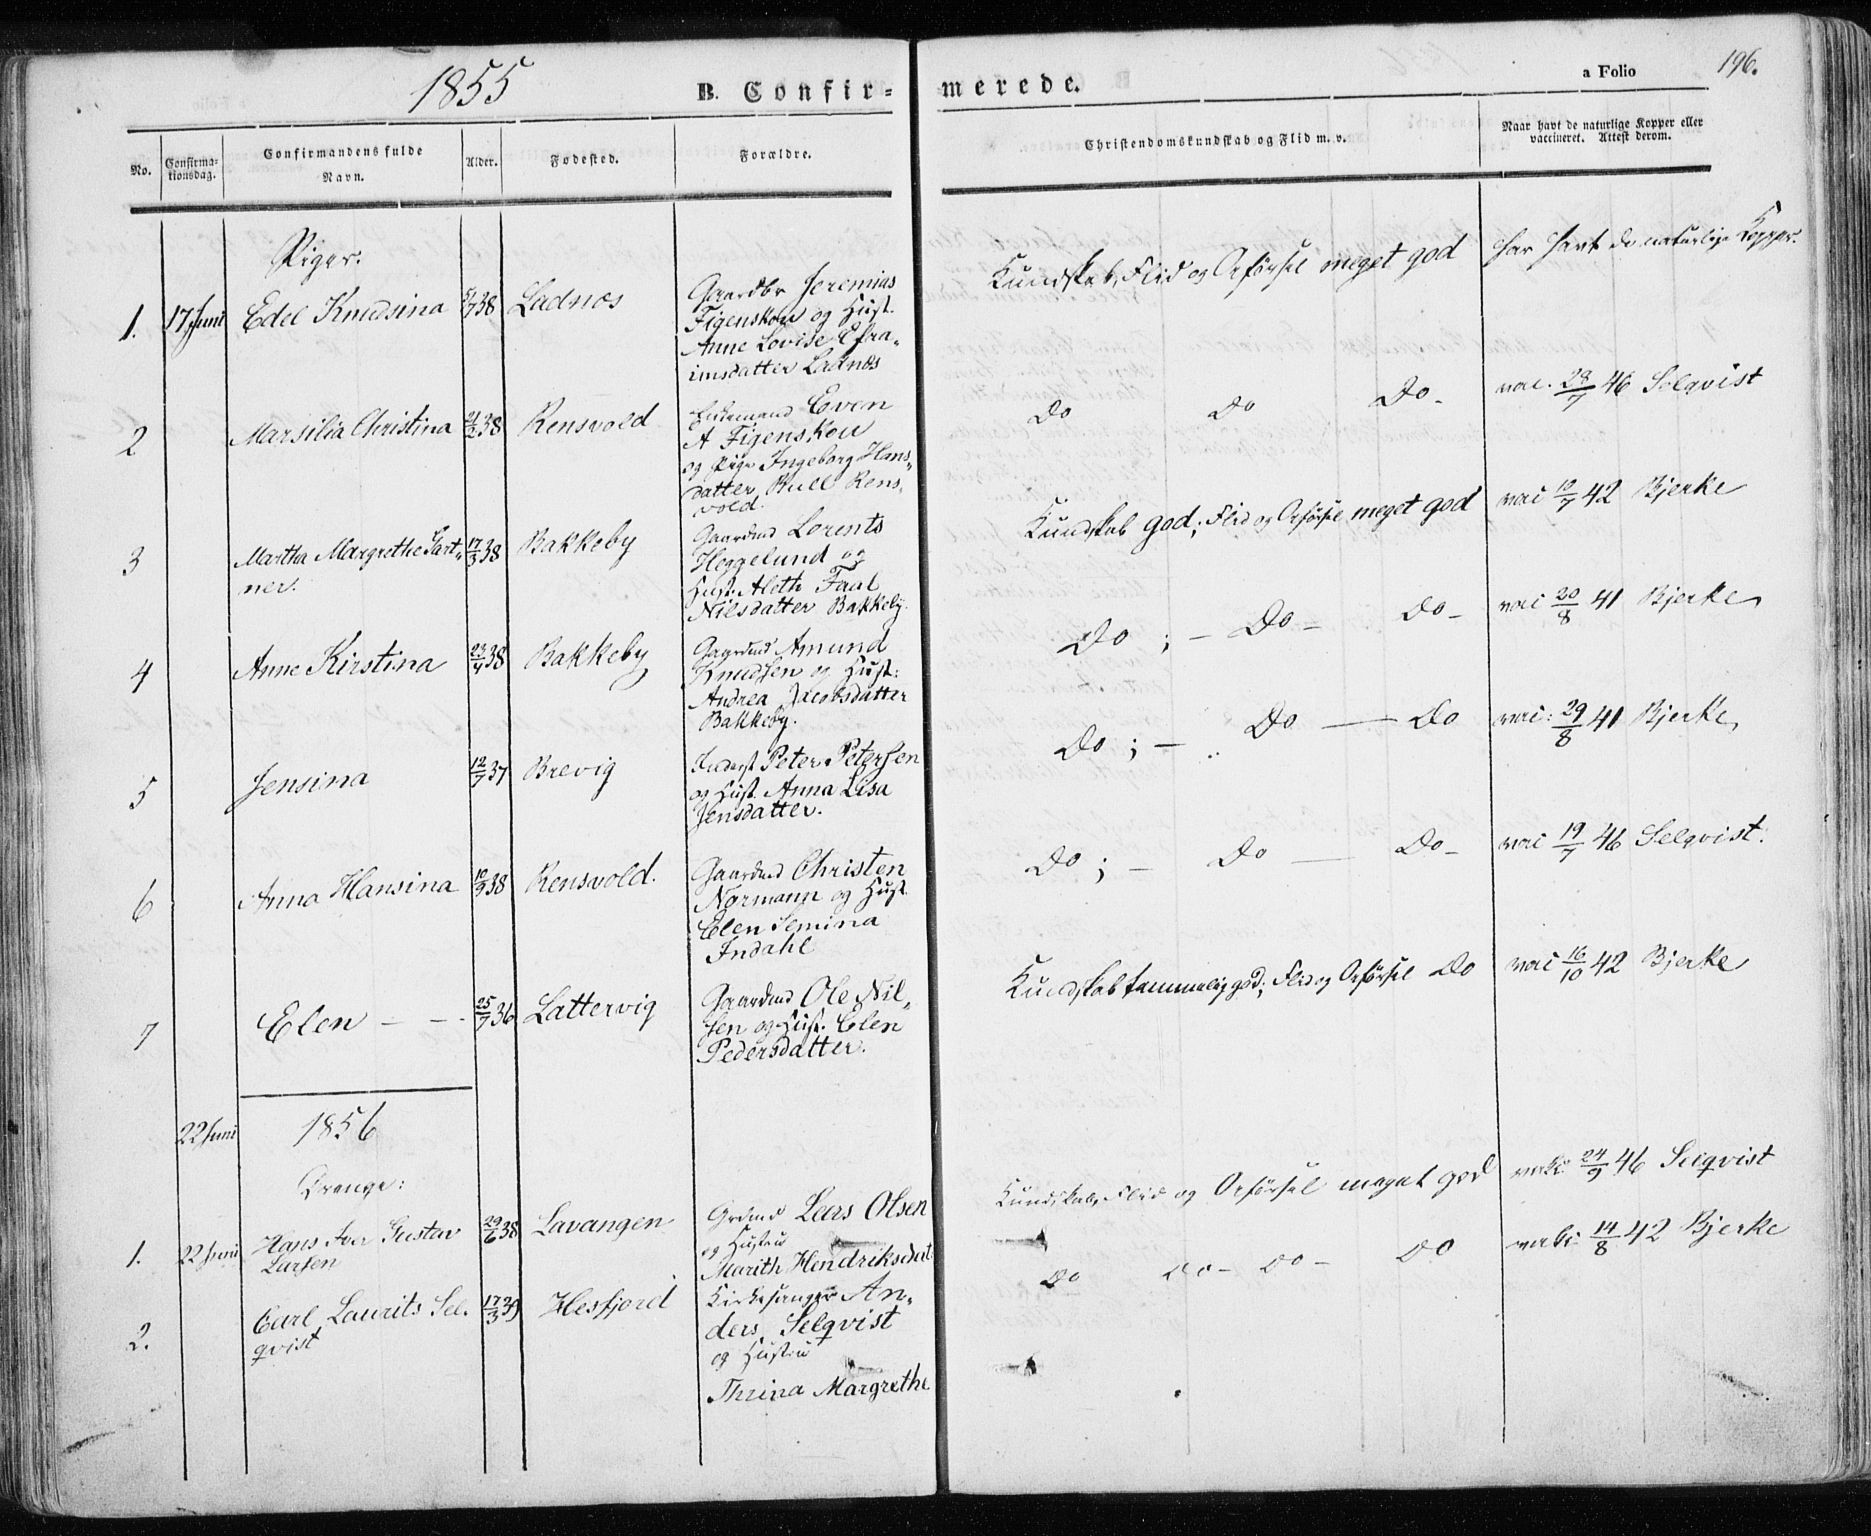 1855
B. Confir-
merede.
a Folio
196.
No.
Confirma-
tionsdag.
Confirmandens fulde
Navn.
Alder.
Fødested.
Forældre.
Christendomskundskab og Flid m. v.
Naar havt de naturlige Kopper eller
vaccineret. Attest derom.
Piger.
1. 17 Juni Edel Knudsina 5/7 38 Ladnæs
Gaardbr Jeremias
Figenskou og Hust.
Anne Lovise Efra-
imsdatter Ladnæs
Kundskab, Flid og Opførsel meget god
har havt de naturlige Kopper.
2 Marsilia Christina 21/2 38 Rensvold
Even
A Figenskou
og Pige Ingeborg Hans-
datter Bull Rens-
vold.
Do Do Do-
vac. 23/7 46 Selqvist
3 Martha Margrethe Gart-
ner. 17/3 38 Bakkeby
Gaardmd Lorents
Heggelund og
Hust. Aleth Faal
Nilsdatter Bakkeby.
Kundskab god; Flid og Opførsel meget god
vac 10/7 42 Bjerke
4 Anne Kirstina 23/4 38 Bakkeby
Gaardmd Amund
Knudsen og Hust:
Andrea Jacobsdatter
Bakkeby.
Do ; - Do - Do -
vac 20/8 41 Bjerke
5 Jensina 12/7 37 Brevig
Inderst Peter Petersen
og Hust. Anna Lisa
Jensdatter.
Do ; - Do - Do
vac: 29/8 41 Bjerke
6 Anna Hansina 10/9 38 Rensvold.
Gaardmd Christen
Normann og Hust
Elen Semina
Indahl
Do ; - Do - Do -
vac 19/7 46 Selqvist.
7 Elen - - - 25/7 36 Lattervig
Gaardmd Ole Nil-
sen og Hust. Elen
Pedersdatter.
Kundskab temmelig god; Flid og Opførsel Do
vac 16/10 42 Bjerke
22 Juni 1856
Drenge:
1. 22 Juni Hans Iver Gustav
Larsen 29/6 38 Lavangen
Grdmd Lars Olsen
og Hustru
Marith Hendriksdat.
Kundskab, Flid og Opførsel meget god
vakc 24/9 46 Selqvist
2. Carl Laurits Sel-
qvist 17/3 39 Hesfjord
Kirkesanger An-
ders Selqvist
og Hustru
Thrina Margrethe
Do Do - Do - Do
vakc 14/8 42 Bjerke